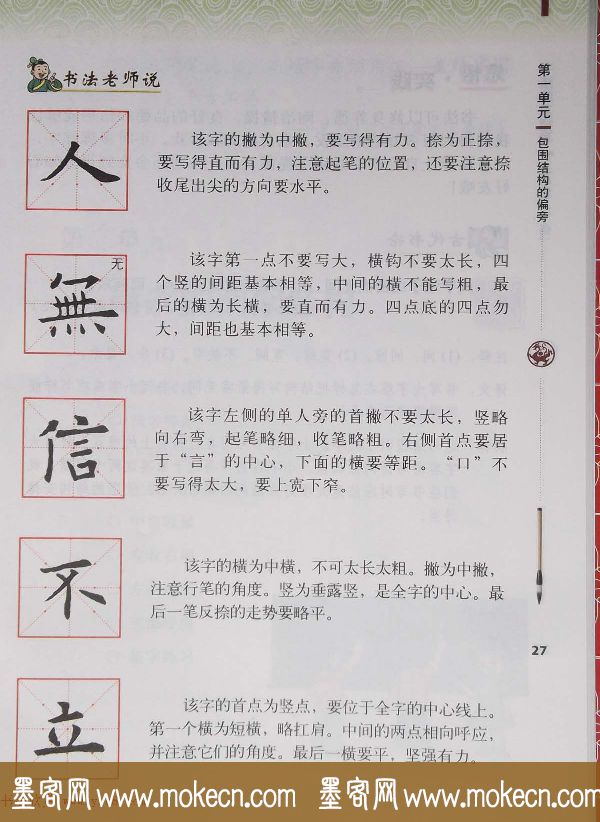 书法老师说
人
该字的撇为中撇，要写得有力。捺为正捺，
要写得直而有力，注意起笔的位置，还要注意捺
收尾出尖的方向要水平。
無
无
该字第一点不要写大，横钩不要太长，四
个竖的间距基本相等，中间的横不能写粗，最
后的横为长横，要直而有力。四点底的四点勿
大，间距也基本相等。
信
该字左侧的单人旁的首撇不要太长，竖略
向右弯，起笔略细，收笔略粗。右侧首点要居
于“言”的中心，下面的横要等距。“口”不
要写得太大，要上宽下窄。
不
该字的横为中横，不可太长太粗。撇为中撇，
注意行笔的角度。竖为垂露竖，是全字的中心。最
后一笔反捺的走势要略平。
立
该字的首点为竖点，要位于全字的中心线上。
第一个横为短横，略扛肩。中间的两点相向呼应，
并注意它们的角度。最后一横要平，坚强有力。
第一单元
包围结构的偏旁
27
墨客网 www.mokecn.com 墨客网 www.mokecn.com